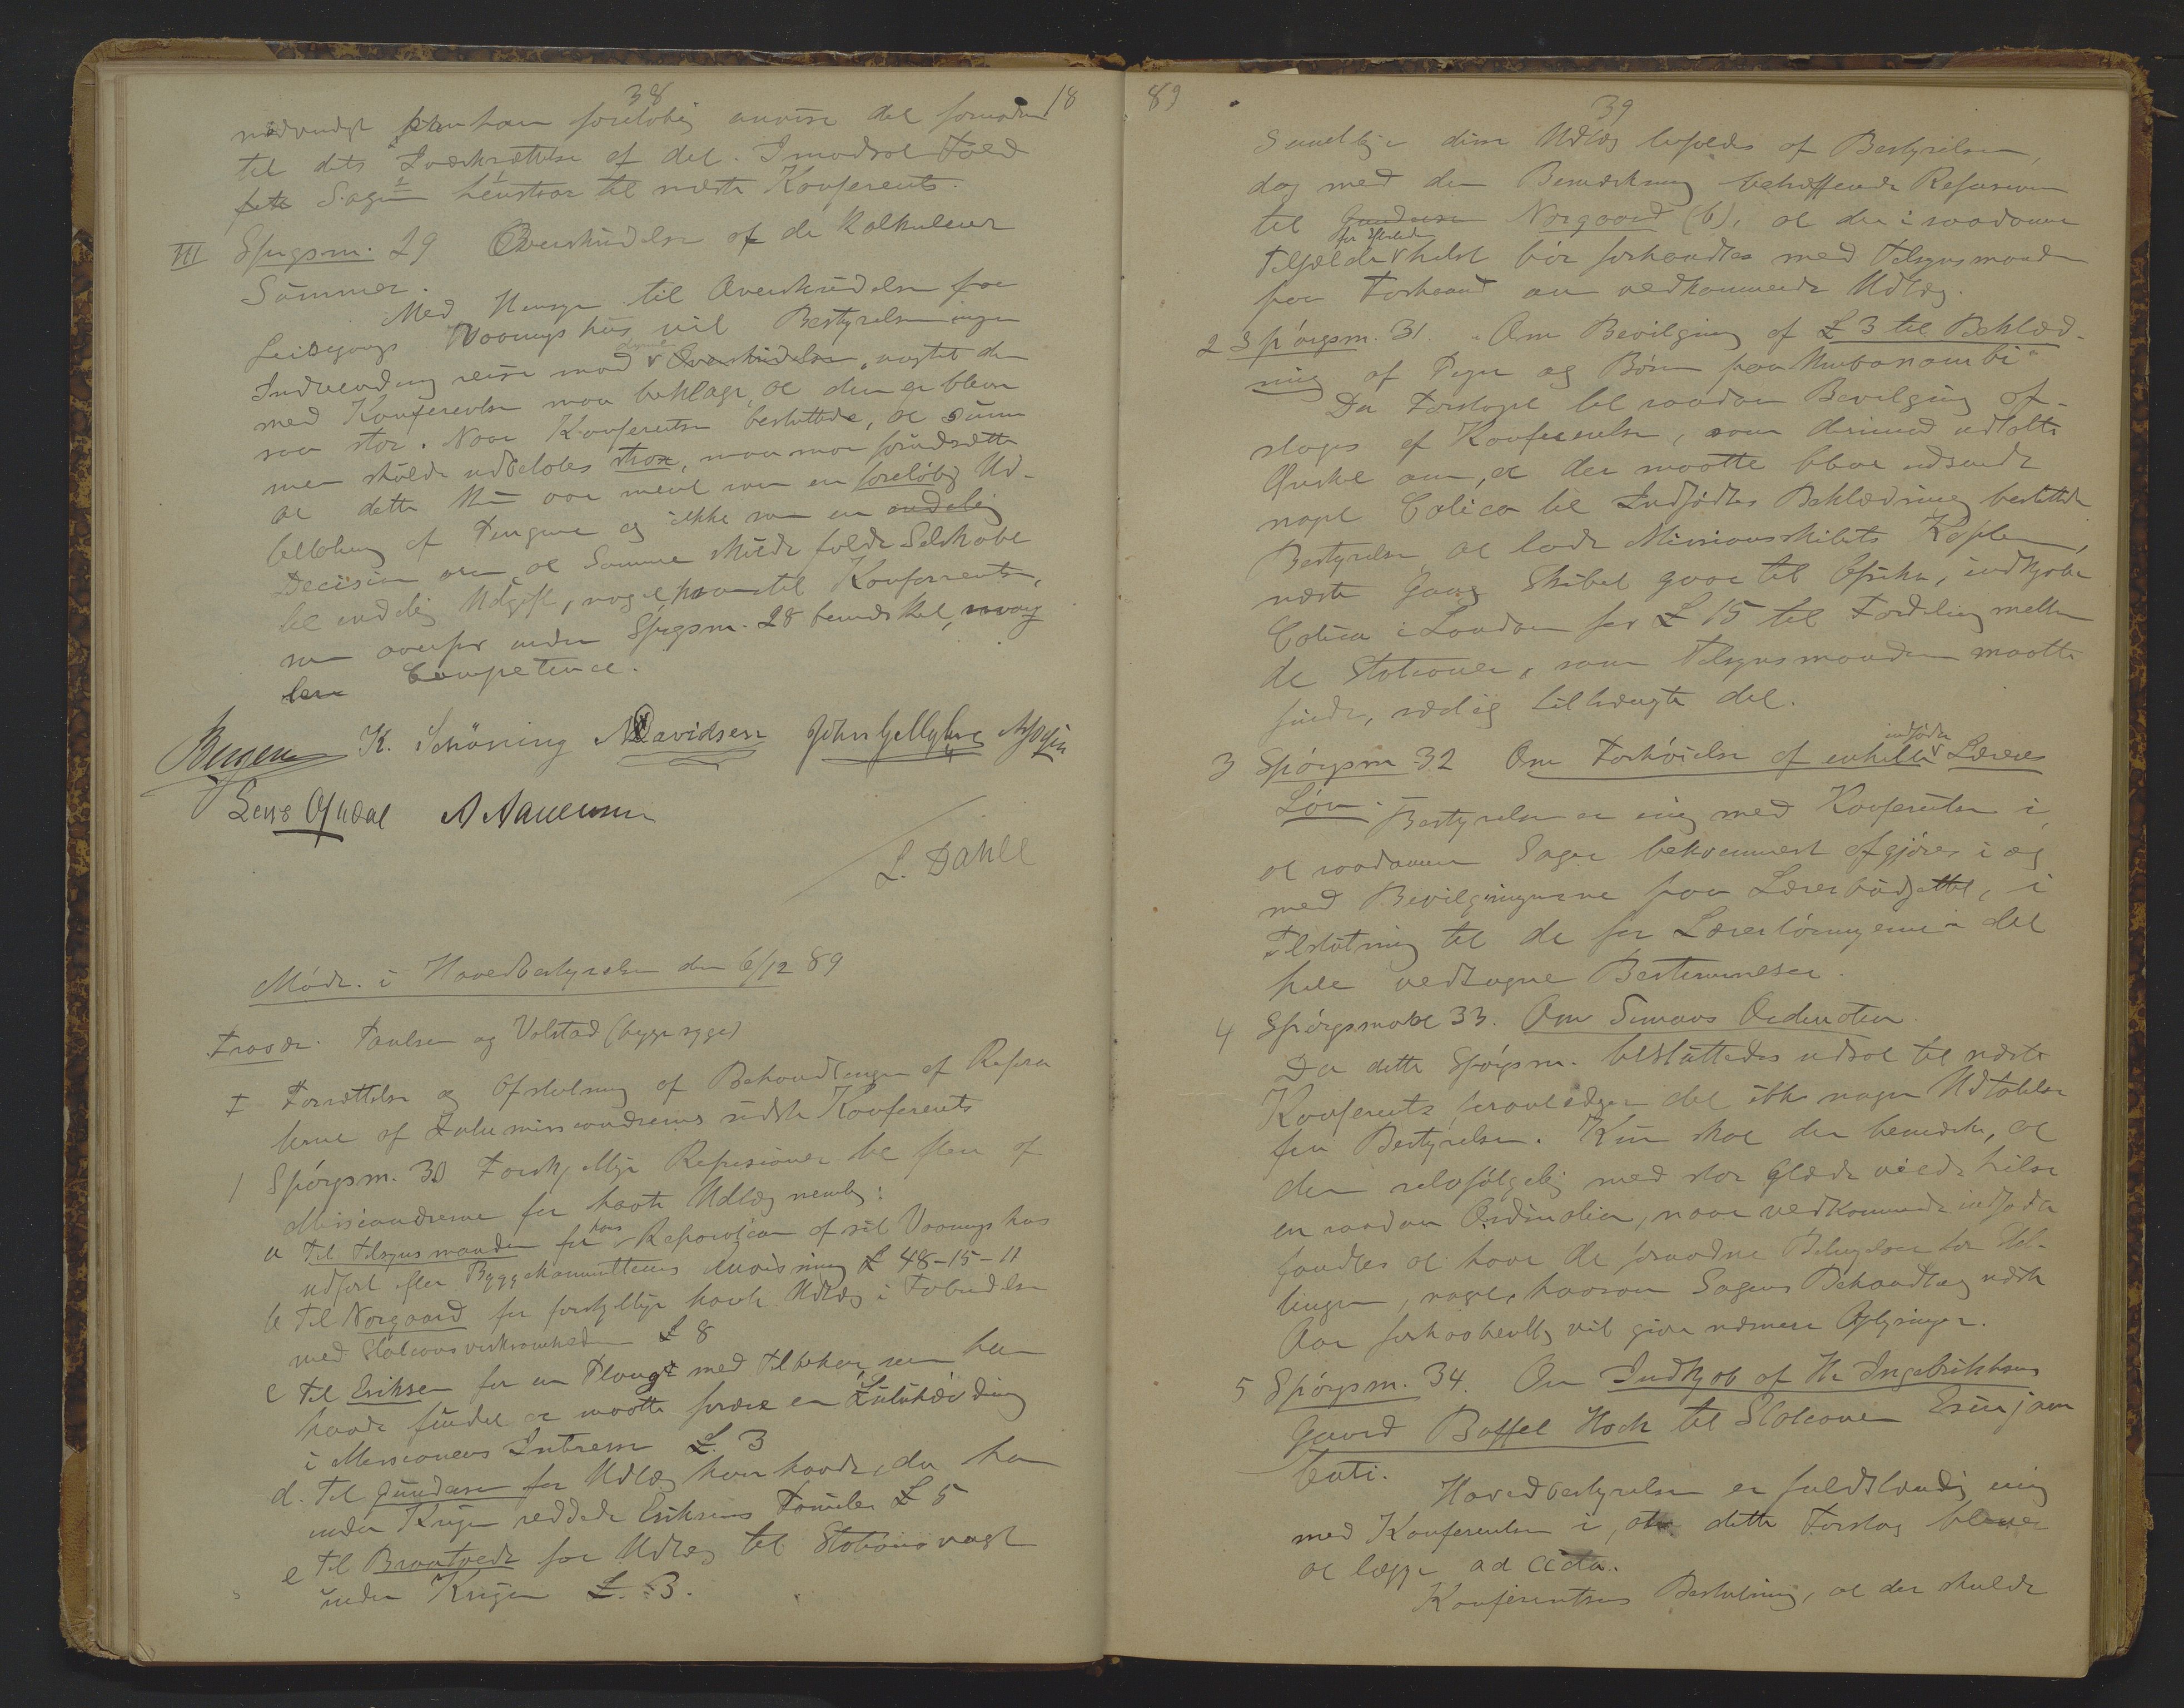 38
18
nødvendigt kan han foreløbig anvise det fornødne
til dets Iværksættelse af det. I modsat Fald
Sagen henstaar til næste Konferents.
III Sprgsm. 29 Overskridelse af de kalkulerede
Summer.
Med Hensyn til Overskridelse for
Leisegangs Vaaningshus vil Bestyrelsen ingen
Indvending reise mod Overskridelsen, uagtet den
med Konferentsen maa beklage, at den er bleven
saa stor. Naar Konferentsen besluttede, at Sum
men skulde udbetales strax, maa man forudsætte
at dette kun var ment som en foreløbig Ud-
betaling af Pengene og ikke som en endelig
Decision om at Summen skulde falde Selskabet
til endelig Udgift, noget hvortil Konferentsen,
som ovenfor under Spgsm. 28 bemærket, mang
ler Competence.
K. Schöning Davidsen John Gjellglue
Lars Oftedal
L. Dahle
Møde i Hovedbestyrelsen den 6/12 89
Fravær. Paulsen og Volstad (begge syge)
I Forsættelse og Afslutning af Behandlingen af Refera
terne af Zulumissionærernes sidste Konferents
1 Spørgsm. 30 Forskjellige Refusioner til flere af
Missionærerne for havte Udlæg nemlig:
a Til Tilsynsmanden for Reparation af sit Vaaningshus
udført efter Byggekommitteens Anvisning £ 48-15-11
b Til Norgaard for forskjellige havte Udlæg i Forbindelse
med Stationsvirksomheden £ 8
c Til Eriksen for en Plougs med Tilbehør, som han
havde fundet at maatte forære en Zuluhøvding
i Missionens Intresse £. 3
d. Til Gundersen for Udlæg han havde, da han
under Krigen reddede Eriksens Familie £ 5
e Til Braatvedt for Udlæg til Stationsvagt
under Krigen £. 3.
89
39
Samtlige disse Udlæg bifaldes af Bestyrelsen,
dog med den Bemærkning betræffende Refusionen
til Gundersen Norgaard (b), at der i saadanne
Tilfælde helst bør forhandles med Tilsynsmanden
paa Forhaand om vedkommende Udlæg.
2 Spørgsm. 31. "Om Bevilgning af £ 3 til Beklæd-
ning af Piger og Børn paa Umbonambi"
Da Forslaget til saadan Bevilgning af-
sloges af Konferentsen, som derimod udtalte
Ønsket om, at der maatte blive udsendt
noget Calico til Indfødtes Beklædning besluttede
Bestyrelsen at lade Missionsskibets Kaptein,
næste Gang Skibet gaar til Afrika, indkjøbe
Calico i London for £ 15 til Fordeling mellem
de Stationer, som Tilsynsmanden maatte
finde, særlig tiltrængte det.
3 Spørgsm 32 Om Forhøielse af enkelte indfødte Læreres
Løn. Bestyrelsen er enig med Konferentsen i,
at saadanne Sager bekvemmest afgjøres i og
med Bevilgningerne paa Lærerbudgettet, i
Tilslutning til de for Lærerlønningerne i det
hele vedtagne Bestemmelser.
4 Spørgsmaal 33. Om Simons Ordination
Da dette Spørgsm. besluttedes udsat til næste
Konferents foranlediger det ikke nogen Udtalelse
fra Bestyrelsen. Kun skal der bemærkes, at
den selvfølgelig med stor Glæde vilde hilse
en saadan Ordination, naar vedkommende indfødte
fandtes at have de fornødne Betingelser for Stil-
lingen, noget, hvorom Sagens Behandling næste
Aar forhaabentlig vil give nærmere Oplysninger.
5 Spørgsm. 34. Om Indkjøb af Hr Ingebrikthsens
Gaard Boffel Hoek til Stationen Esinjam
buti.
Hovedbestyrelsen er fuldstændig enig
med Konferentsen i, at dette Forslag bliver
at lægge ad acta.
Konferentsens Beslutning, at der skulde